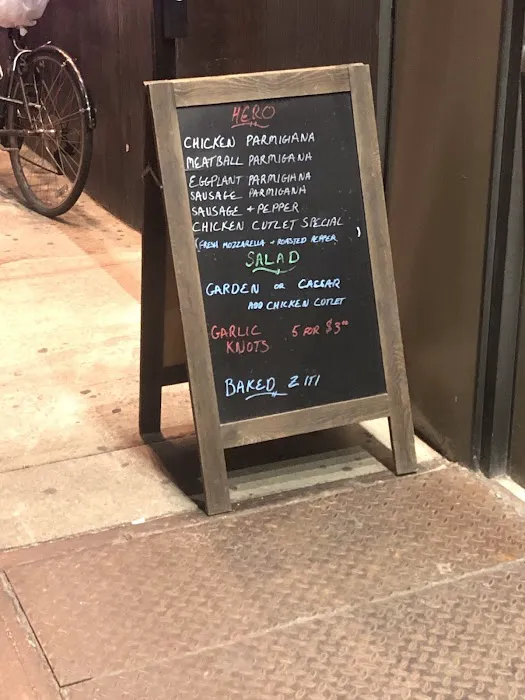 HERO
CHICKEN PARMIGIANA
MEATBALL PARMIGANA
EGGPLANT PARMIGIANA
SAUSAGE PARMIGANA
SAUSAGE + PEPPER
CHICKEN CUTLET SPECIAL
(FRESH MOZZARELLA + ROASTED PEPPER)
SALAD
GARDEN OR CAESAR
ADD CHICKEN CUTLET
GARLIC 5 FOR $3⁰⁰
KNOTS
BAKED ZITI